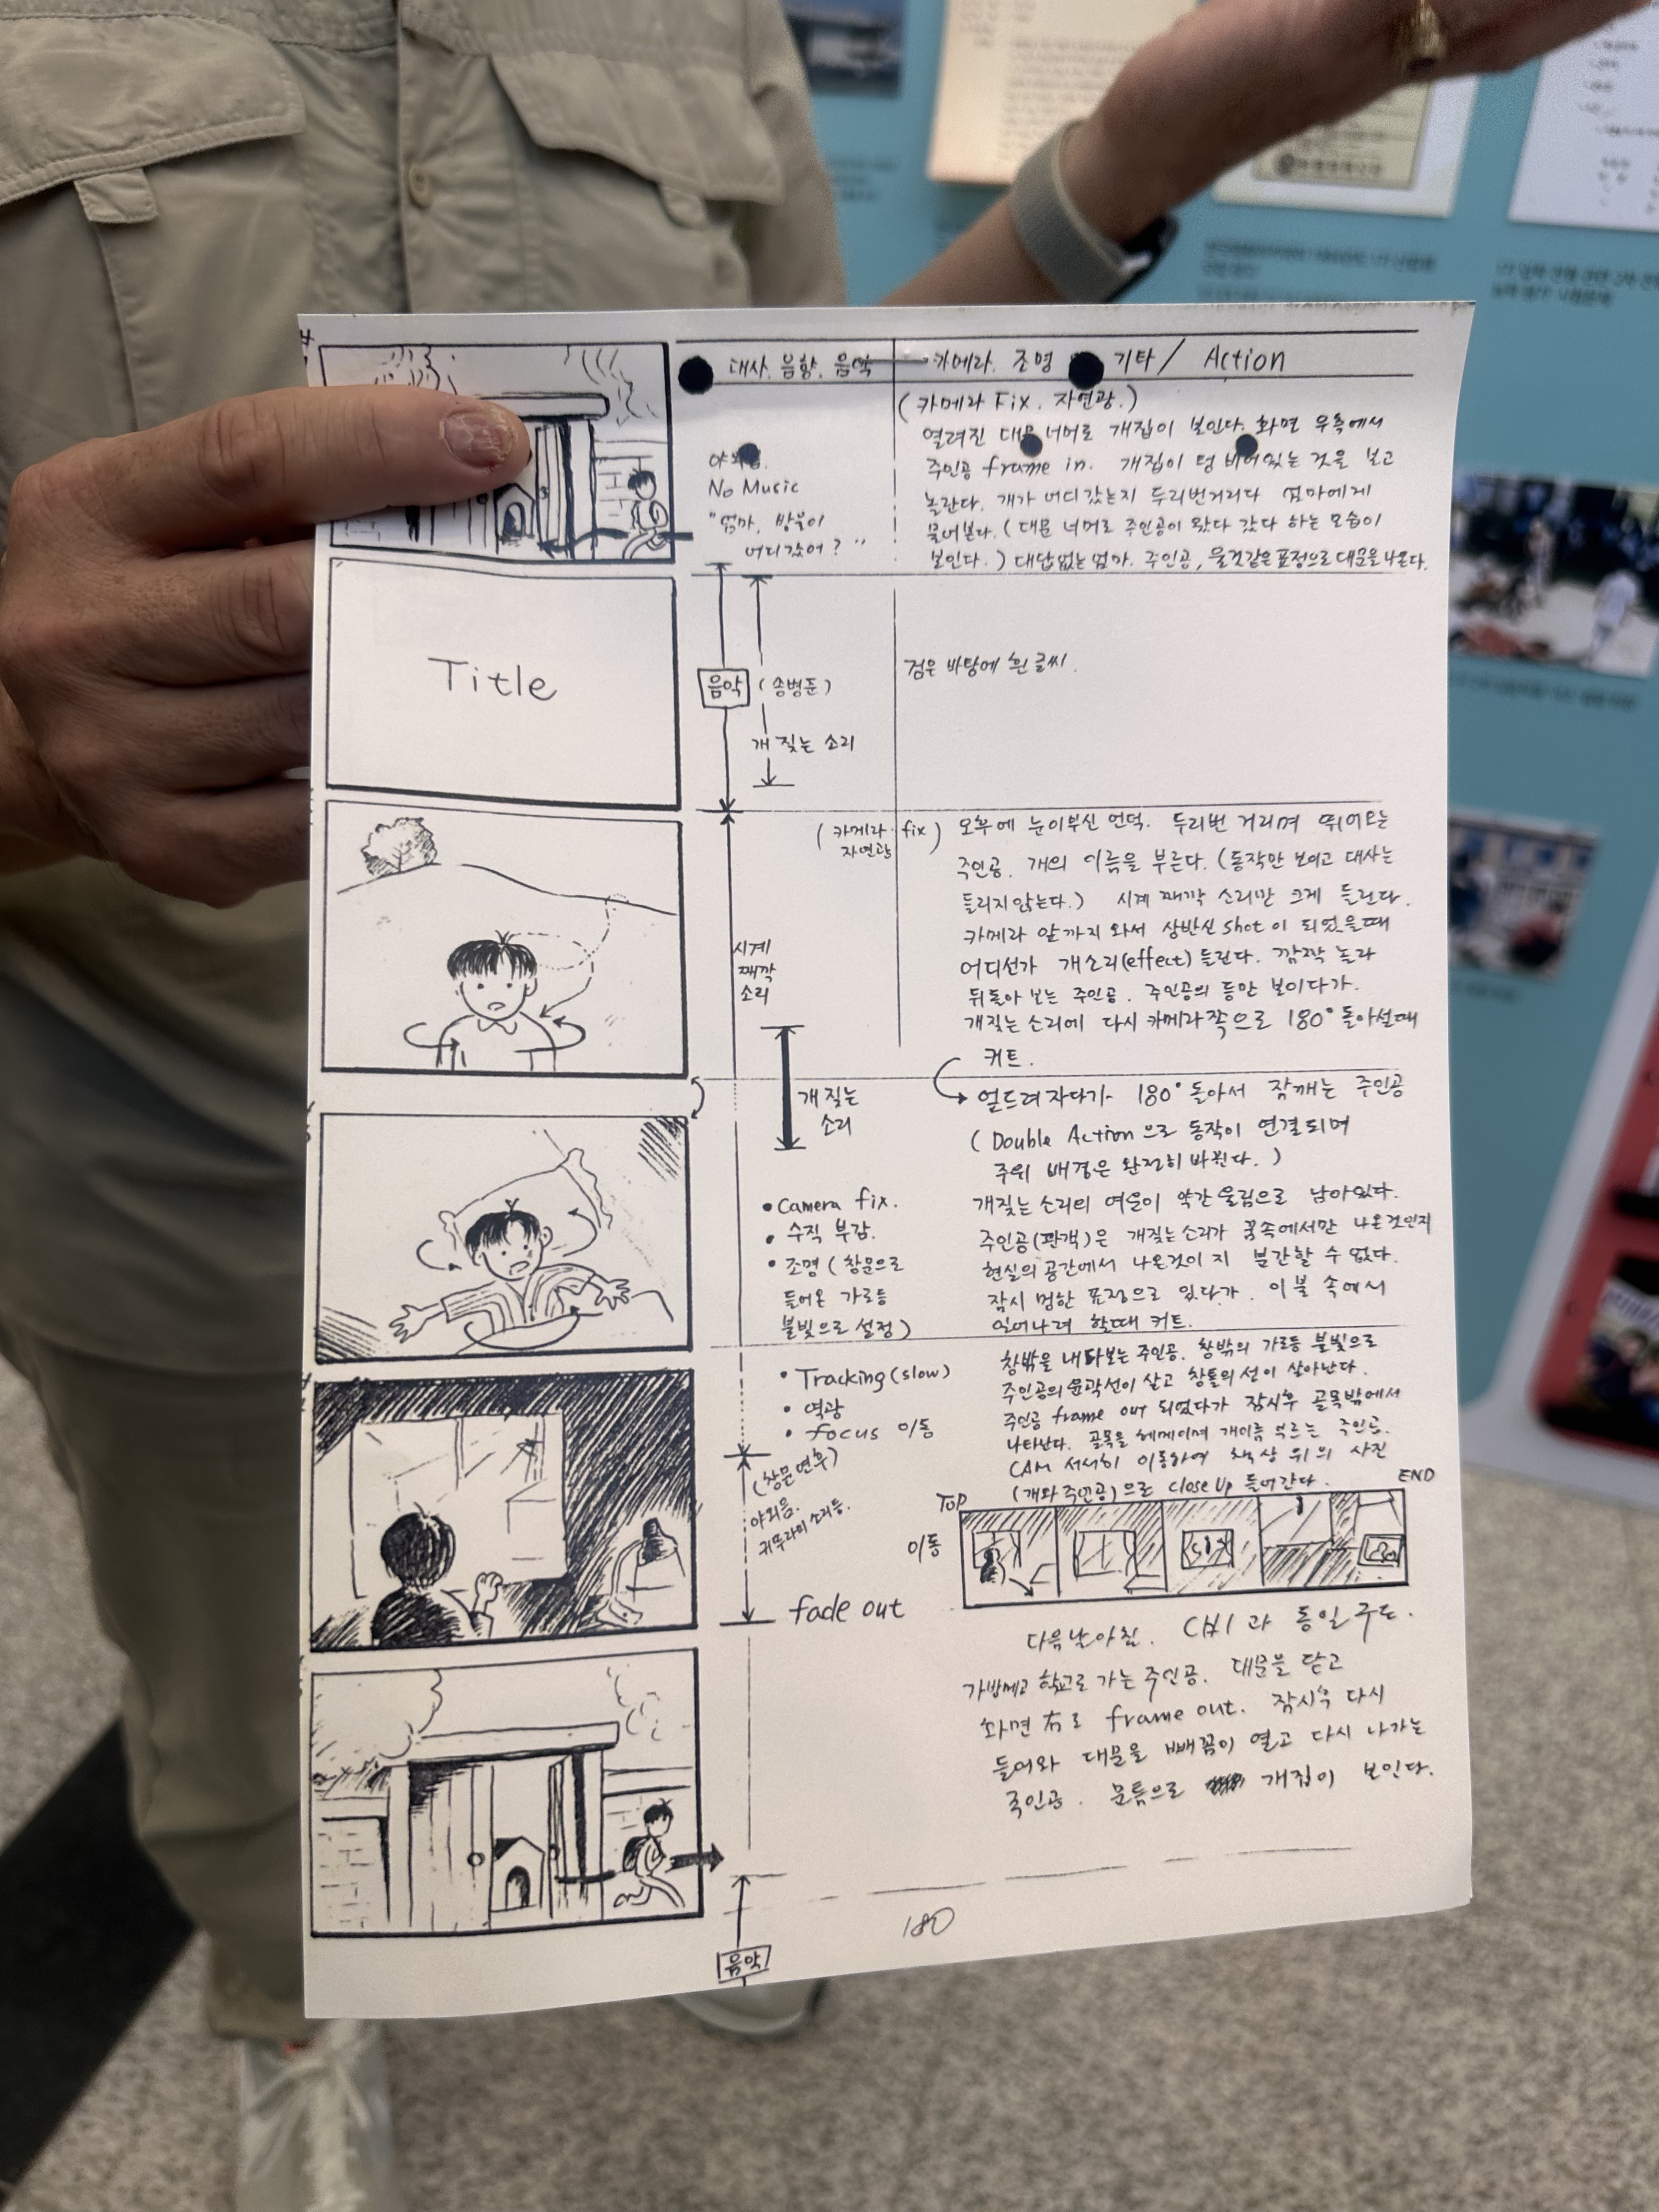 대사. 음향. 음악
카메라. 조명 기타 / Action
No Music
"엄마, 방울이
어디갔어? "
(카메라 Fix. 자연광.)
열려진 대문 너머로 개집이 보인다. 화면 우측에서
주인공 frame in. 개집이 텅 비어있는 것을 보고
놀란다. 개가 어디갔는지 두리번거리다 엄마에게
물어본다. (대문 너머로 주인공이 왔다 갔다 하는 모습이
보인다.) 대답없는 엄마. 주인공, 울것같은 표정으로 대문을 나온다.
Title
음악 (송병준)
개 짖는 소리
검은 바탕에 흰 글씨.
시계
째깍
소리
(카메라 fix)
자연광
오후에 눈이부신 언덕. 두리번 거리며 뛰어오는
주인공. 개의 이름을 부른다. (동작만 보이고 대사는
들리지않는다.) 시계 째깍 소리만 크게 들린다.
카메라 앞까지 와서 상반신 shot이 되었을때
어디선가 개소리(effect) 들린다. 깜짝 놀라
뒤돌아 보는 주인공. 주인공의 등만 보이다가.
개짖는 소리에 다시 카메라쪽으로 180° 돌아설때
커트.
개 짖는
소리
• Camera fix.
• 수직 부감.
• 조명 (창문으로
들어온 가로등
불빛으로 설정)
엎드려 자다가 180° 돌아서 잠깨는 주인공
(Double Action으로 동작이 연결되며
주위 배경은 완전히 바뀐다.)
개짖는 소리의 여운이 약간 울림으로 남아있다.
주인공(관객)은 개짖는소리가 꿈속에서만 나온것인지
현실의 공간에서 나온것이지 분간할 수 없다.
잠시 멍한 표정으로 있다가. 이불 속에서
일어나려 할때 커트.
• Tracking (slow)
• 역광
• focus 이동
(창문 연후)
야외음.
귀뚜라미 소리등.
fade out
창밖을 내다보는 주인공. 창밖의 가로등 불빛으로
주인공의 윤곽선이 살고 창틀의 선이 살아난다.
주인공 frame out 되었다가 잠시후 골목밖에서
나타난다. 골목을 헤메이며 개이름 부르는 주인공.
CAM 서서히 이동하여 책상 위의 사진
(개와 주인공)으로 close up 들어간다.
TOP
END
이동
다음날아침. C#1 과 동일 구도.
가방메고 학교로 가는 주인공. 대문을 닫고
화면 右로 frame out. 잠시후 다시
들어와 대문을 빼꼼이 열고 다시 나가는
주인공. 문틈으로 개집이 보인다.
음악
180